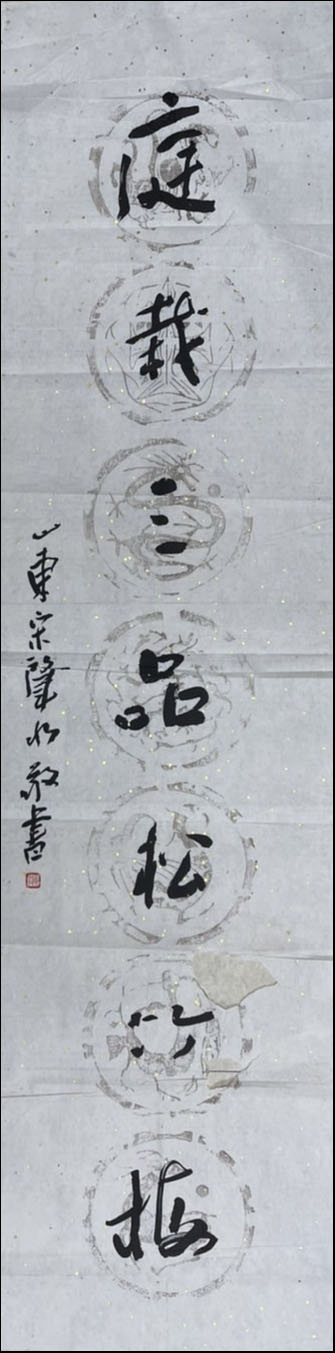 庭栽三品松竹梅
山東宗肇水敬書